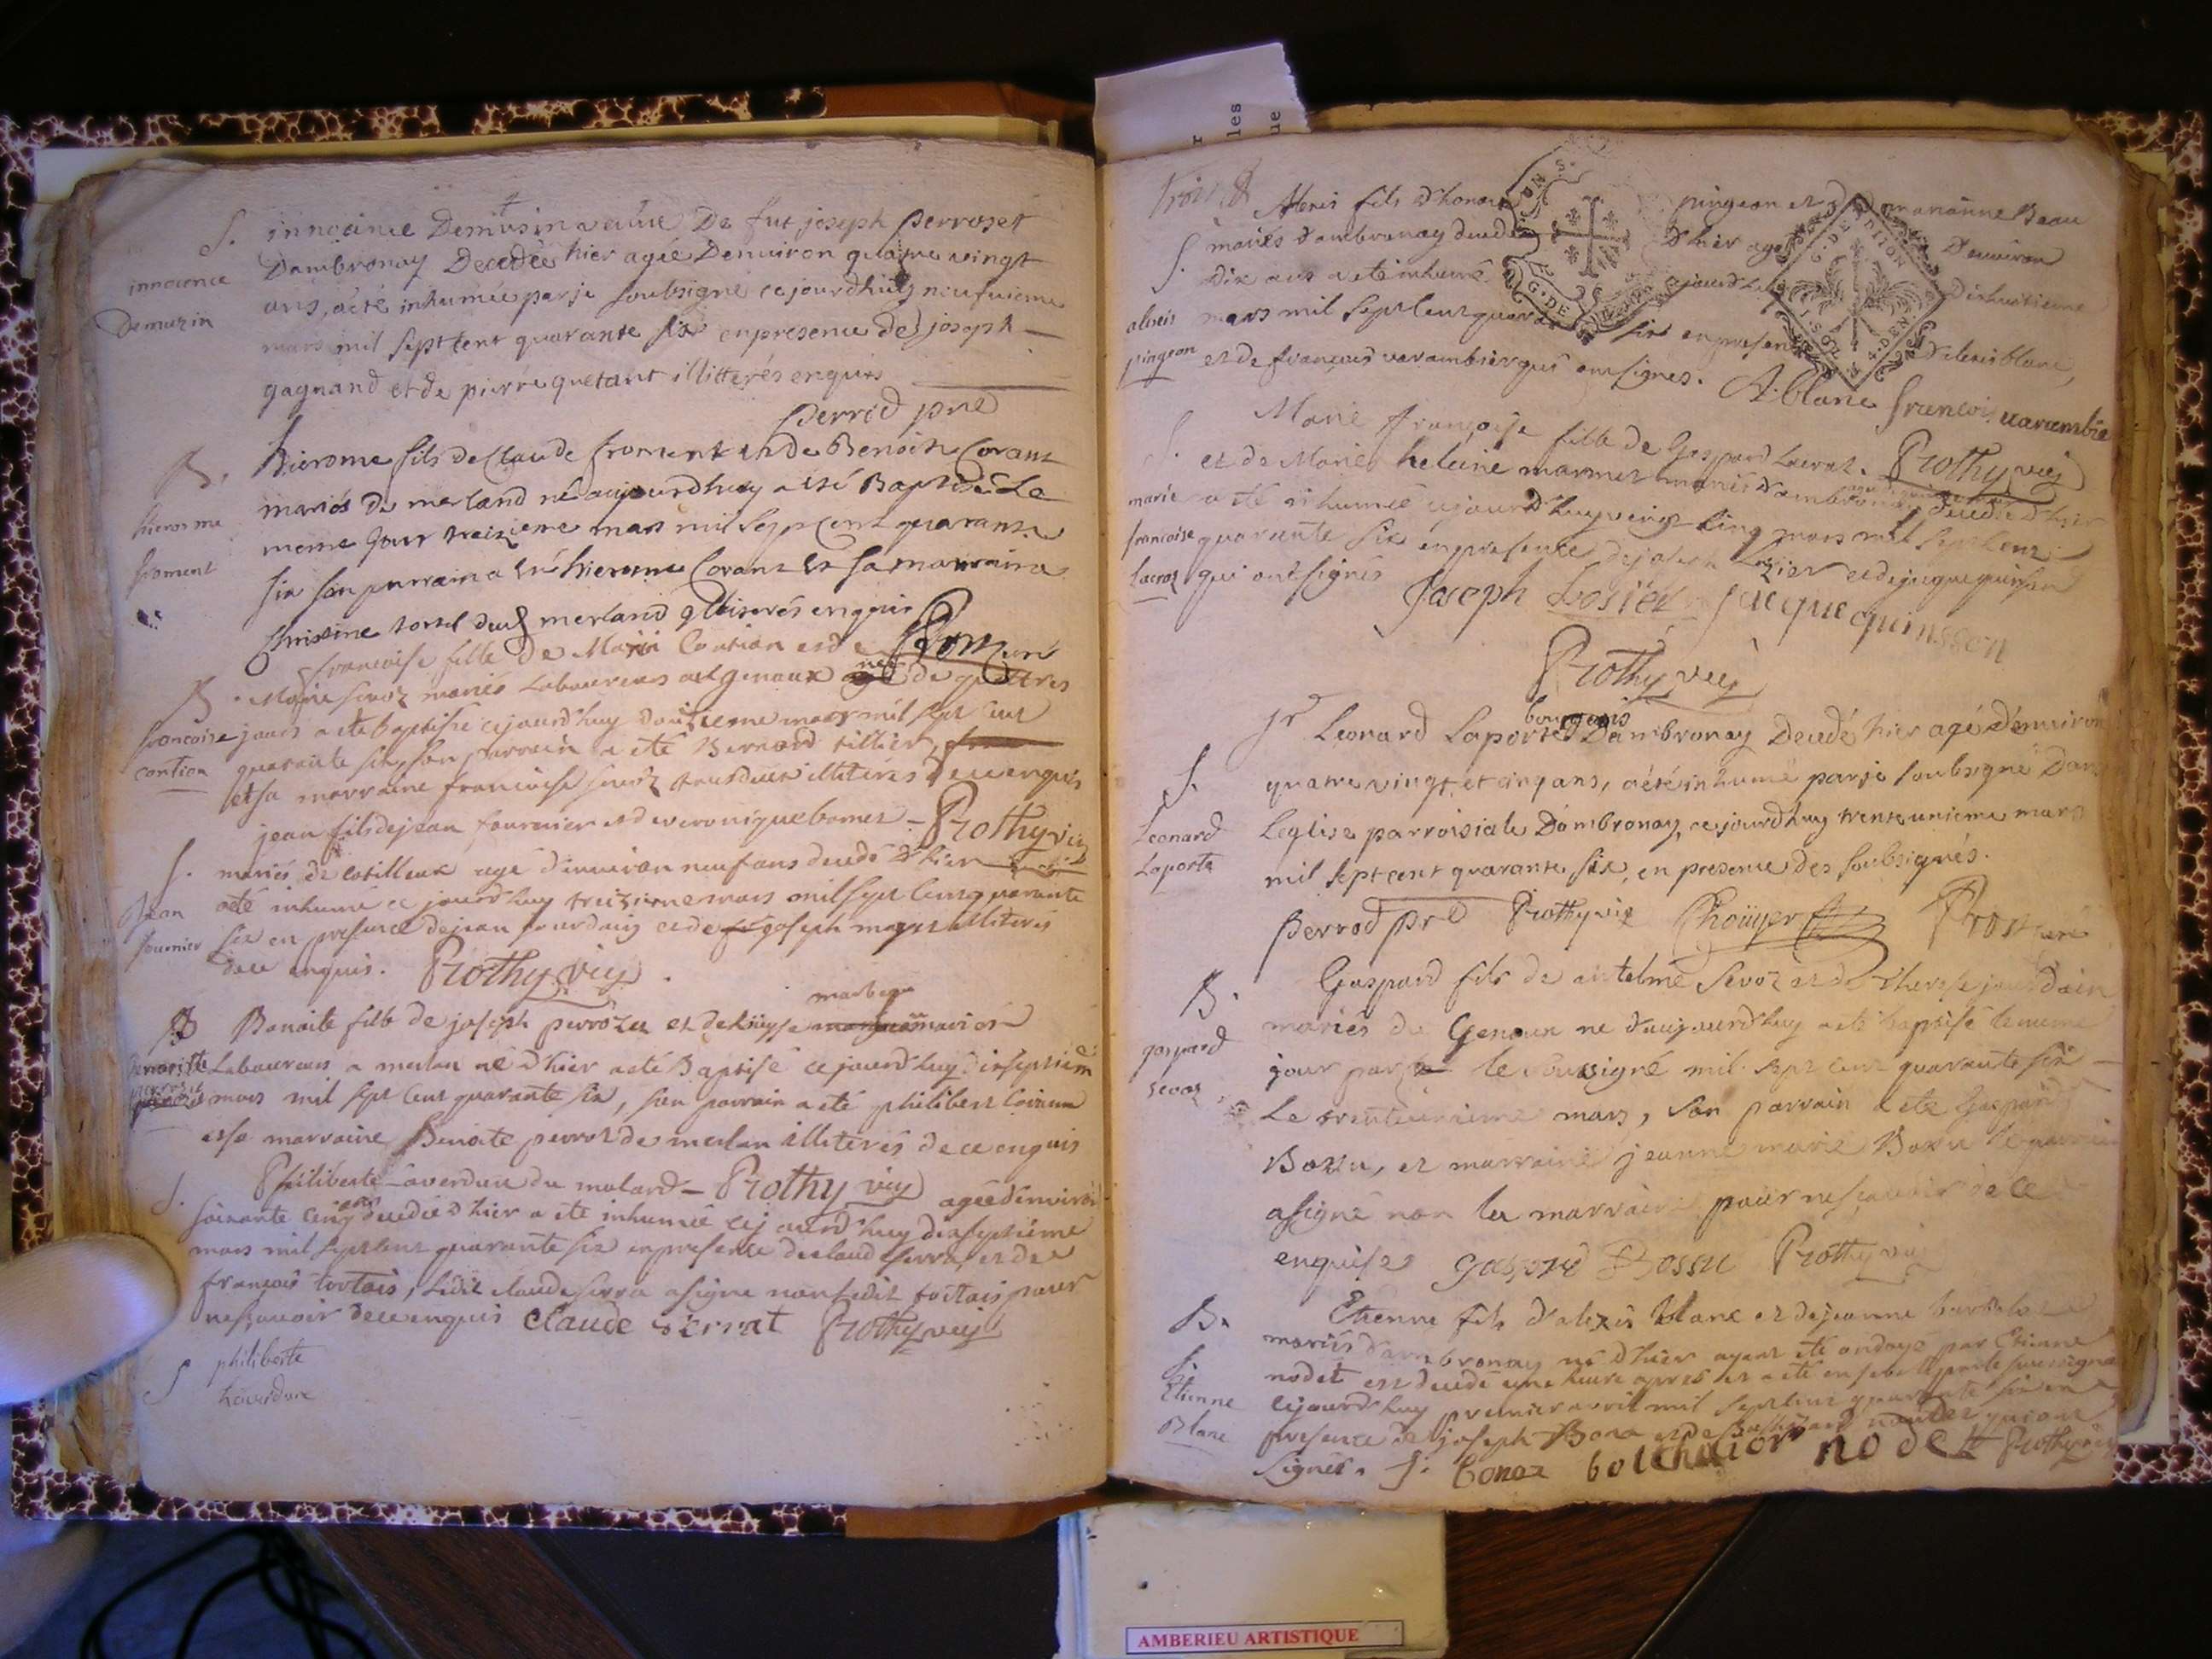 S. innocence Demusin veuve De fut joseph perroset
innocence
Demuzin
Dambronay Decedée hier agée Denviron quatre vingt
ans, a été inhumée par je soubsigné cejourdhuy neufvieme
mars mil sept cent quarante six en presence de joseph
gagnand et de pierre quetant illitterés enquis
perrod pre
B. hierome fils de Claude froment et de Benoite Corant
hierosme
froment
mariés de merland né aujourdhuy a eté Baptisé Le
meme jour treizieme mars mil sept cent quarante
six son parrain a eté hierome Corant et sa marraine
Christine tortel deus merland illiterés enquis
francoise fille de Marin Contion et de
B. Marie sevoz mariés Laboureurs aux genoux née de quatres
francoise
contion
jours a eté baptisée cejourd'huy douzieme mars mil sept cent
quarante six, son parrain a eté Bernard tillier,
et sa marraine francoise sevoz tousdeux illiterés de ce enquis
jean fils de jean fournier et de veronique bornet - Prothy vic
S. mariés de cotilleux agé d'environ neuf ans decedé d'hier
Jean
fournier
a eté inhumé ce jourd'huy treizieme mars mil sept cent quarante
six en presence de jean jourdain et de joseph magnet illiteris
de ce enquis. Prothy vic
marbeau
B Benoite fille de joseph perrozet et de mariés
benoiste
perrozet
Laboureurs a merlan né d'hier a eté Baptisé ce jourd'huy dixseptieme
mars mil sept cent quarante six, son parrain a eté philibert
et sa marraine Benoite perrozet de merlan illiterés de ce enquis
S. Philiberte averdure du molard - Prothy vic agée d'environ
soixante cinq ans decedée d'hier a eté inhumée cejourd'huy dixseptieme
mars mil sept cent quarante six en presence de claude serra, et de
francois tortais, ledit claude serra a signé non ledit tortais pour
ne scavoir de ce enquis Claude serrat Prothy vic
S philiberte
haverdure
Trois
Alexis fils d'honoré pingeon et de marianne Beau
S.
alexis
pingeon
mariés d'ambronay decedé d'hier agé d'environ
dix ans a eté inhumé cejourd'huy dixhuitieme
mars mil sept cent quarante six en presence d'alexis blanc,
et de francois varambier qui ont signés. A. blanc francois varambie
S. Marie françoise fille de Gaspard Lacroz. Prothy vic
marie
francoise
Lacroz
et de Marie heleine marmet mariés d'ambronay decedée d'hier
a eté inhumée cejourd'huy vingt cinq mars mil sept cent
quarante six en presence de joseph Lozier et de jacque quinson
qui ont signés Joseph Losier jacque quinsson
Prothy vic
bourgeois
sr Leonard Laporte Dambronay Decedé hier agé d'environ
S.
Leonard
Laporte
quatre vingt et cinq ans, a été inhumé par je soubsigné Dans
Leglise parroisiale Dambronay, cejourdhuy trente unieme mars
mil sept cent quarante six, en presence des soubsignés.
perrod pre Prothy vic
B. Gaspard fils de antelme Sevoz et de therese jourdain
gaspard
sevoz
mariés du Genoux né d'aujourd'huy a eté baptisé le meme
jour par le soussigné mil sept cent quarante six
Le trenteunieme mars, son parrain a eté Gaspard
Bossu, et marraine jeanne marie Bossu le parrain
a signé non la marraine pour ne scavoir de ce
enquise gaspard Bossu Prothy vic
B. Etienne fils d'alexis blanc et de jeanne
S.
Etienne
Blanc
mariés d'ambronay né d'hier ayant eté ondoyé par Etienne
nodet est decedé une heure apres et a eté enseveli par le soussigné
cejourd'huy premier avril mil sept cent quarante six en
presence de joseph Bona et de nodet qui ont
signés. J. bonaz bolthazor nodet Prothy vic
G. DE DIJON
AMBERIEU ARTISTIQUE
r
les
ue